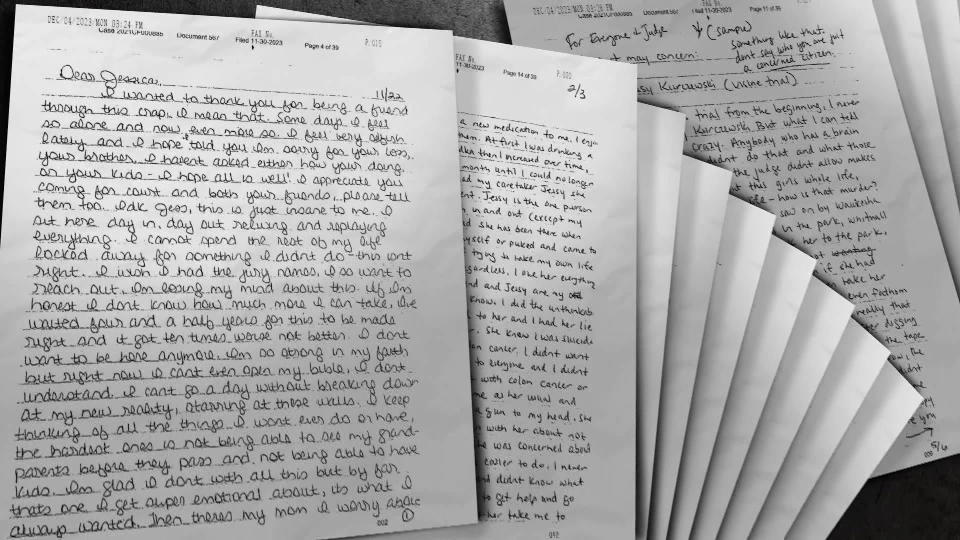 DEC/04/2023/MON 03:24 PM
FAX No.
P. 015
Case 2021CF000885 Document 567 Filed 11-30-2023 Page 4 of 39
Dear Jessica,
11/22
I wanted to thank you for being a friend
through this crap, I mean that. Some days I feel
so alone and now even more so. I feel very selfish
lately and I hope I told you I'm sorry for your loss,
your brother. I havent asked either how your doing,
or your kids - I hope all is well! I appreciate you
coming for court and both your friends, please tell
them too. Idk Jess, this is just insane to me. I
sit here day in, day out reliving and replaying
everything. I cannot spend the rest of my life
locked away for something I didnt do - this isnt
right. I wish I had the jury names, I so want to
reach out. Im losing my mind about this. If Im
honest I dont know how much more I can take, Ive
waited four and a half years for this to be made
right and it got ten times worse not better. I dont
want to be here anymore. Im so strong in my faith
but right now I cant even open my bible, I dont
understand. I cant go a day without breaking down
at my new reality, starring at these walls. I keep
thinking of all the things I wont ever do or have,
the hardest ones is not being able to see my grand-
parents before they pass and not being able to have
kids. Im glad I dont with all this but by far
thats one I get super emotional about, its what I
always wanted. Then theres my mom I worry about
002
1
11-30-2023 Page 14 of 39
P. 020
2/3
a new medication to me, I enjo
them. At first I was drinking a
dka then I increased over time,
month until I could no longer
ad my caretaker Jessy she
ent. Jessy is the one person
in and out (except my
d she has been there when
yself or puked and came to
trying to take my own life
egardless. I owe her everything
nd and Jessy are my
know. I did the unthinkab
to her and I had her lie
. She knew I was suicida
on cancer. I didn't want
to everyone and I didn't
with colon cancer or
me as her usual and
a gun to my head. She
n with her about not
he was concerned about
easier to do. I never
nd didn't know what
to get help and go
her take me to
012
DEC/04/2023/MON 03:26 PM
FAX No.
Case 2021CF000885 Document 567 Filed 11-30-2023 Page 11 of 39
For Everyone & Judge
(sample)
something like that.
dont say who you are just
a concerned citizen.
t may concern:
sy Kurczewski (visine trial)
trial from the beginning, I never
Kurczewski. But what I can tell
crazy. Anybody who has a brain
didn't do that and what those
the judge didn't allow makes
t this girls whole life,
ife - how is that murder?
saw on by Waukesha
in the park, whitnall
her to the park,
ot wanting
if she had
take her
even fathom
really that
er digging
the tape
e you
5/6
009